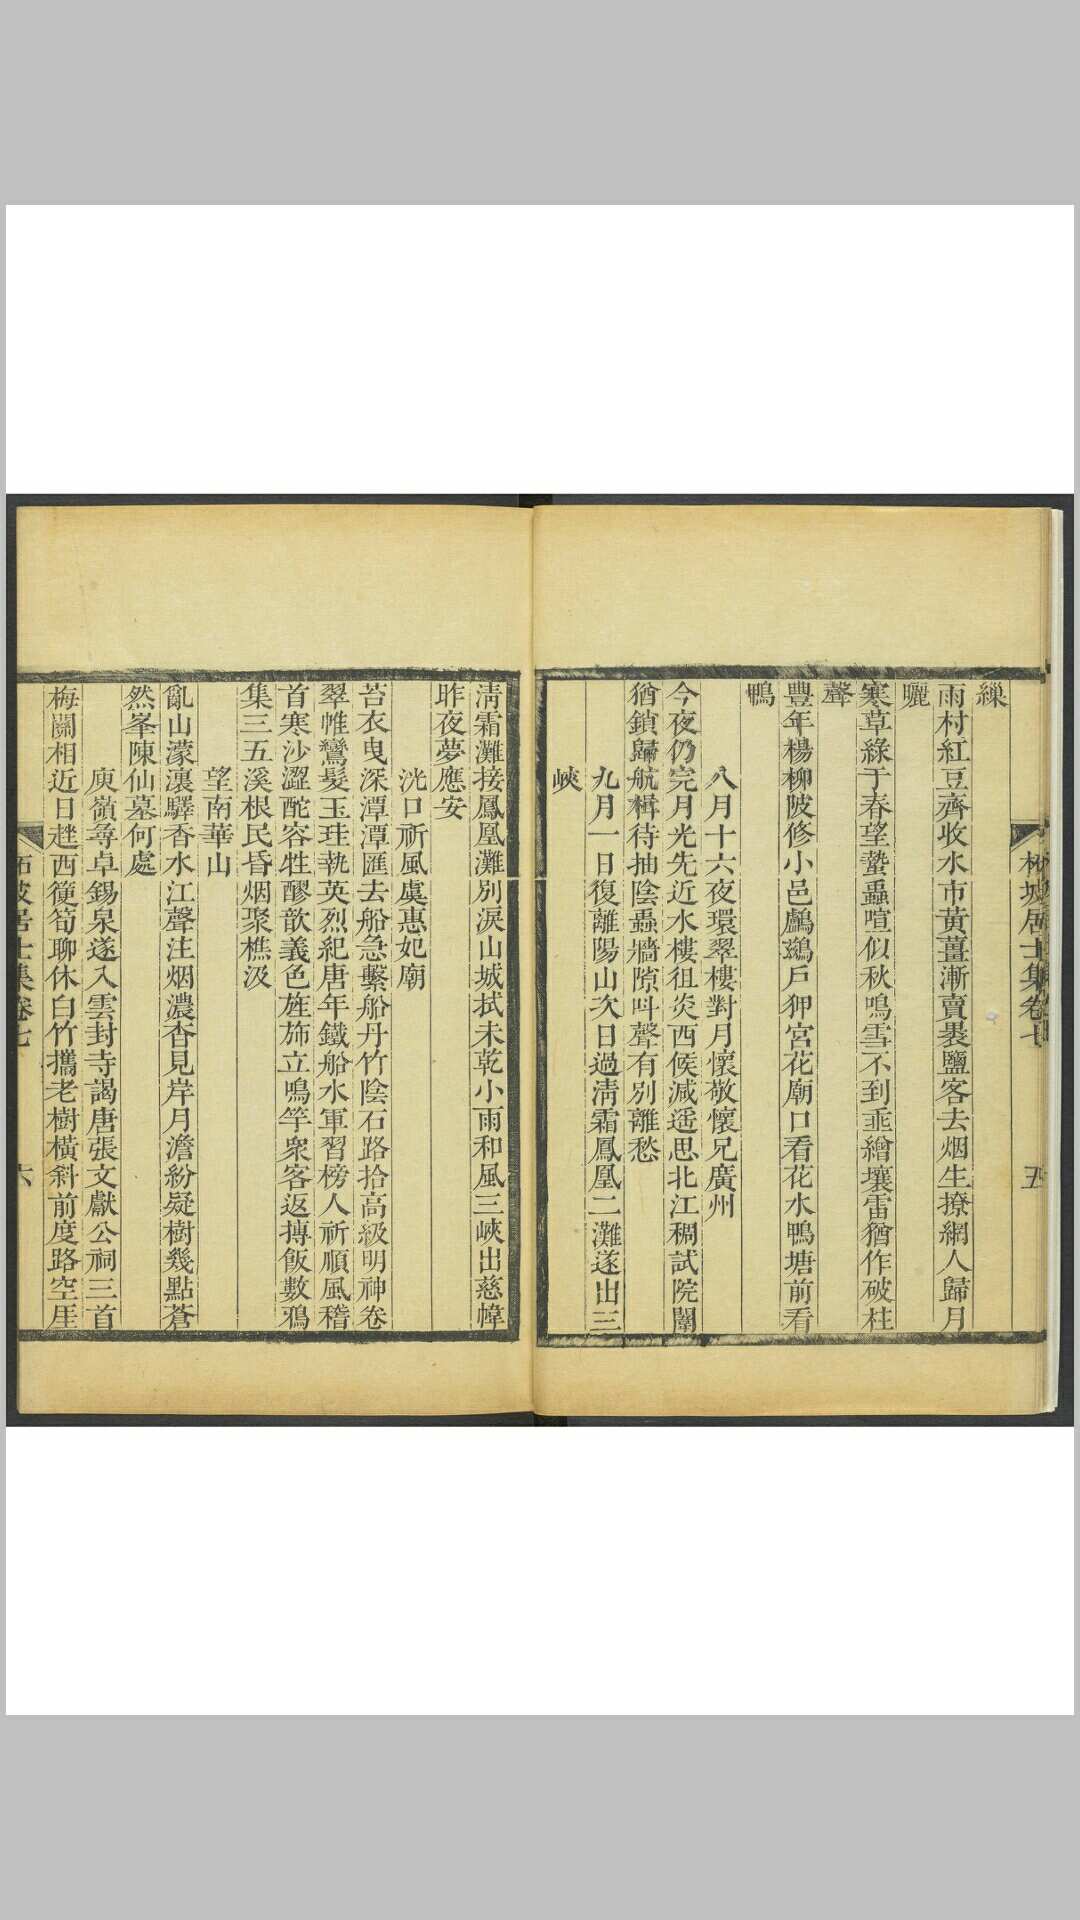 柘坡居士集卷七
五
繅
雨村紅豆齊收水市黃薑漸賣裝鹽客去烟生撩網人歸月
曬
寒草綠于春望蟄蟲喧似秋鳴雪不到亜繒壤雷猶作破柱
聲
豐年楊柳陂修小邑鸕鶿戶狎宮花廟口看花水鴨塘前看
鴨
八月十六夜環翠樓對月懷敬懷兄廣州
今夜仍完月光先近水樓徂炎西候減遥思北江稠試院闈
猶鎖歸航楫待抽陰蟲牆隙叫聲有別離愁
九月一日復離陽山次日過淸霜鳳凰二灘遂出三
峽
淸霜灘接鳳凰灘別淚山城拭未乾小雨和風三峽出慈幃
昨夜夢應安
洸口祈風虞惠妃廟
苔衣曳深潭潭匯去船急繫船丹竹陰石路拾高級明神卷
翠帷鸞髮玉珪執英烈紀唐年鐵船水軍習榜人祈順風稽
首寒沙澀酡容牲醪歆義色旌斾立鳴竽衆客返摶飯數鴉
集三五溪根民昏烟聚樵汲
望南華山
亂山濛瀼驛香水江聲注烟濃杳見岸月澹紛疑樹幾點蒼
然峯陳仙墓何處
庾嶺尋卓錫泉遂入雲封寺謁唐張文獻公祠三首
梅關相近日趖西篗筍聊休白竹攜老樹橫斜前度路空厓
柘坡居士集卷七
六